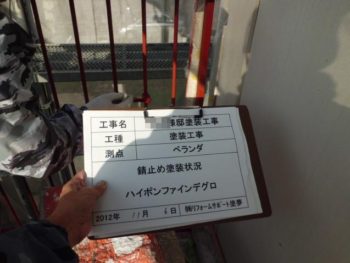 工事名 様邸塗装工事
工種 塗装工事
測点 ベランダ
錆止め塗装状況
ハイポンファインデグロ
2012年 11月 6日 ㈱リフォームサポート塗夢